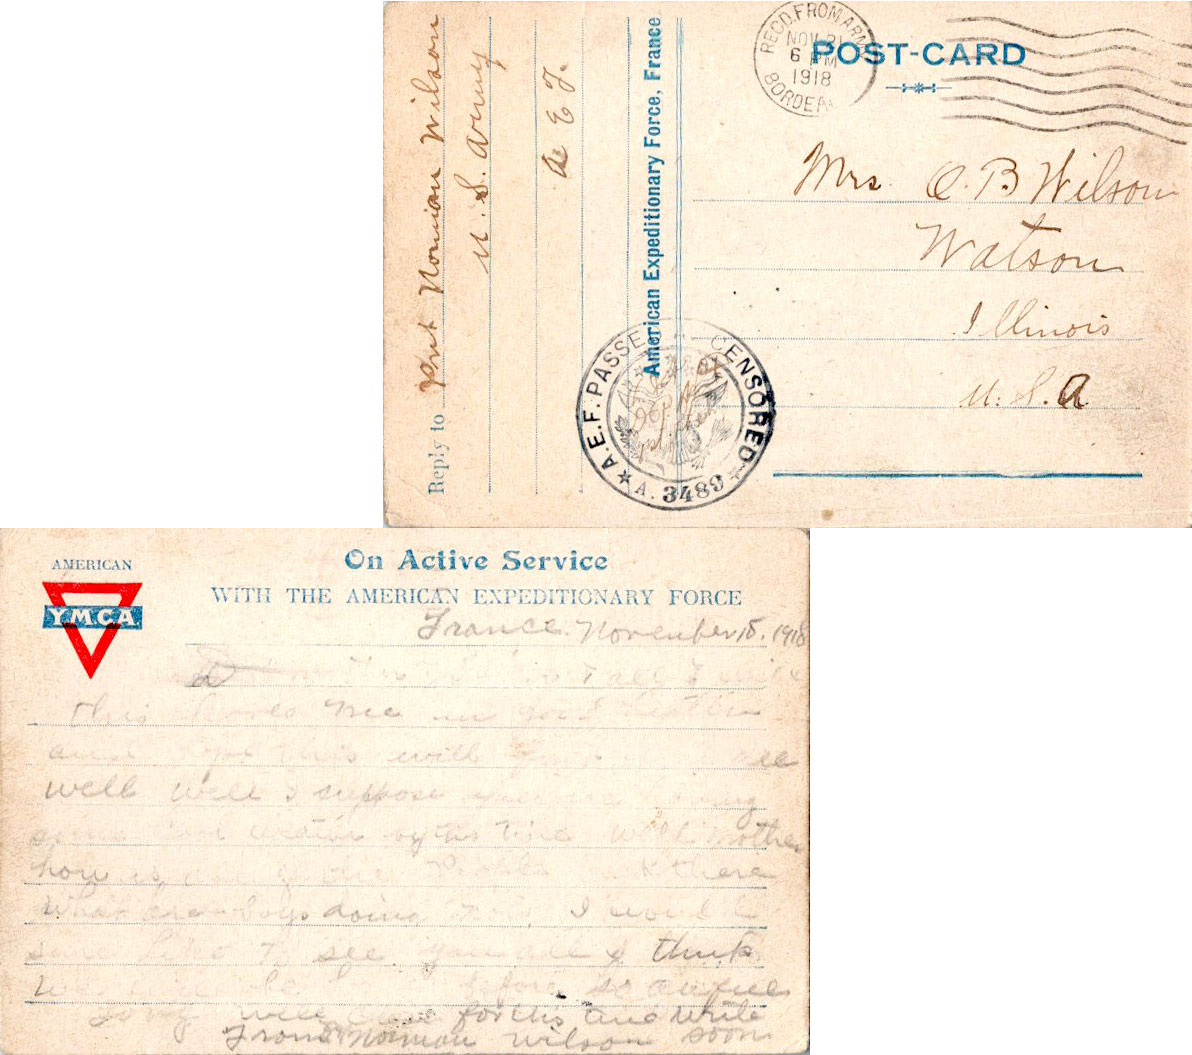 POST-CARD
REC'D. FROM ARM
NOV 21
6 PM
1918
BORDEA
Mrs O. B Wilson
Watson
Illinois
U. S. A.
American Expeditionary Force, France
Reply to Pvt Norman Wilson
U. S. Army
A E F.
A.E.F. PASSED CENSORED
A. 3489
AMERICAN
YMCA
On Active Service
WITH THE AMERICAN EXPEDITIONARY FORCE
France. November 15. 1918
all I write
this leaves me in good health
and hope this will
well well I suppose you are
some by this time well Mother
how is all the there
What are boys doing I would
sure like to see you all I think
We will be before so awful
long well close for this and write
From Norman Wilson soon